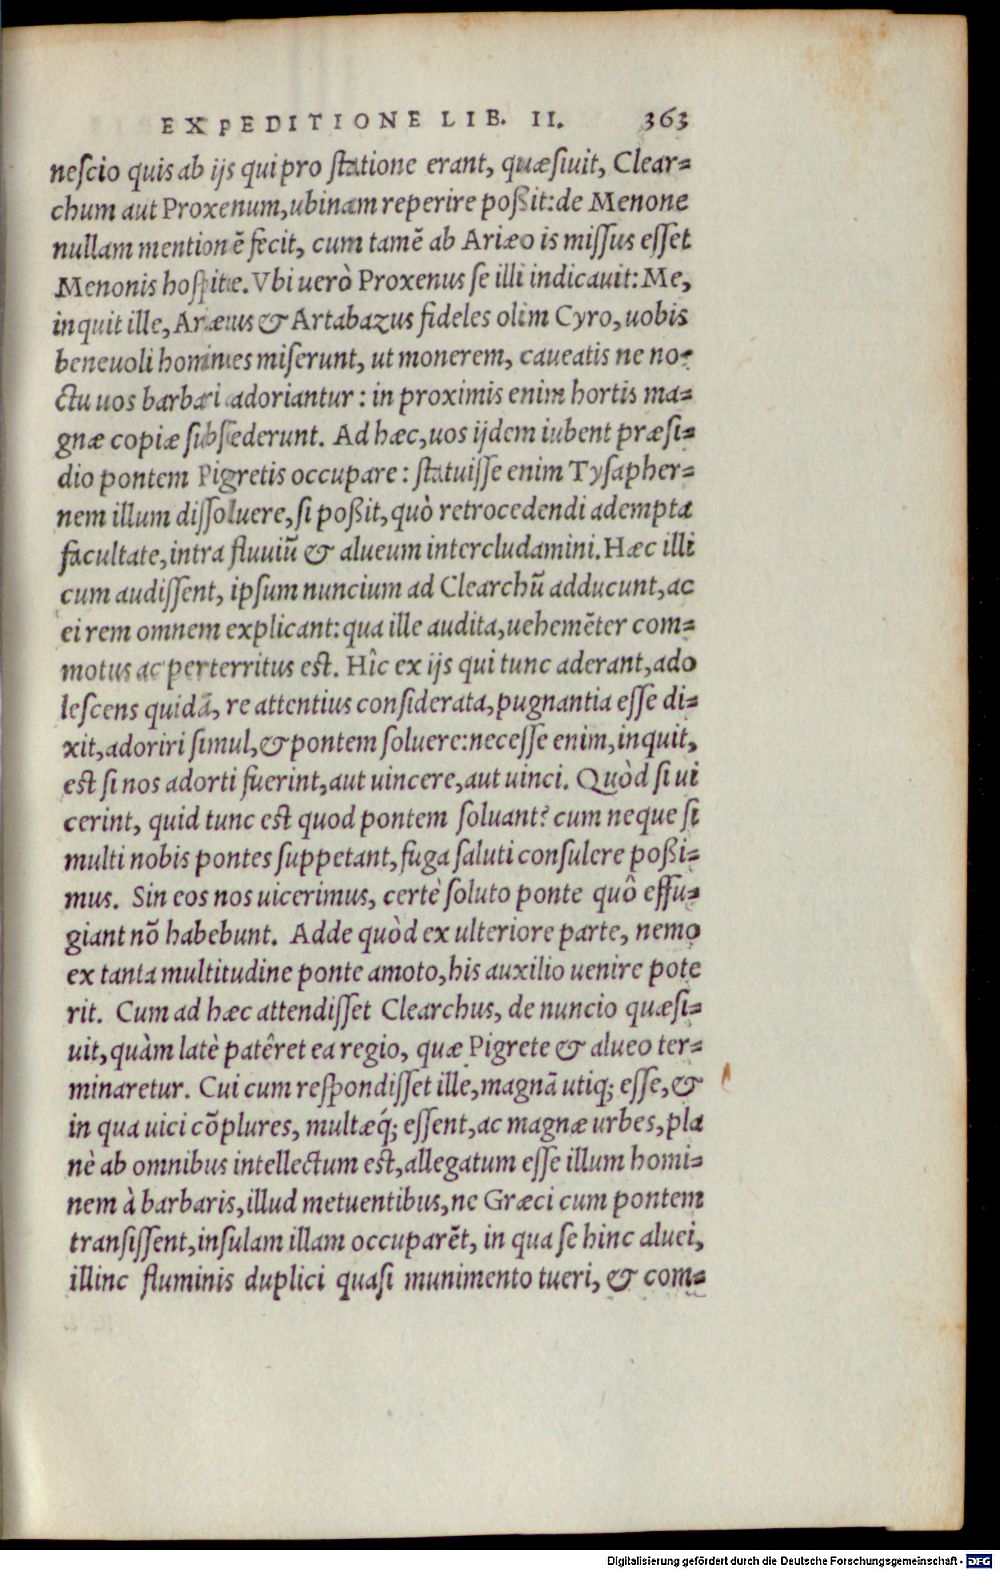 EXPEDITIONE LIB. II. 363
neſcio quis ab ijs qui pro ſtatione erant, quæſiuit, Clear-
chum aut Proxenum, ubinam reperire poßit: de Menone
nullam mentionē fecit, cum tamē ab Ariæo is miſſus eſſet
Menonis hoſpite. Vbi uerò Proxenus ſe illi indicauit: Me,
inquit ille, Ariæus & Artabazus fideles olim Cyro, uobis
beneuoli homines miſerunt, ut monerem, caueatis ne no-
ctu uos barbari adoriantur: in proximis enim hortis ma-
gnæ copiæ ſubſederunt. Ad hæc, uos ijdem iubent præſi-
dio pontem Pigretis occupare: ſtatuiſſe enim Tyſapher-
nem illum diſſoluere, ſi poßit, quò retrocedendi adempta
facultate, intra fluuiū & alueum intercludamini. Hæc illi
cum audiſſent, ipſum nuncium ad Clearchū adducunt, ac
ei rem omnem explicant: qua ille audita, uehemēter com-
motus ac perterritus eſt. Hîc ex ijs qui tunc aderant, ado
leſcens quidā, re attentius conſiderata, pugnantia eſſe di-
xit, adoriri ſimul, & pontem ſoluere: neceſſe enim, inquit,
eſt ſi nos adorti fuerint, aut uincere, aut uinci. Quòd ſi ui
cerint, quid tunc eſt quod pontem ſoluant? cum neque ſi
multi nobis pontes ſuppetant, fuga ſaluti conſulere poßi-
mus. Sin eos nos uicerimus, certè ſoluto ponte quô effu-
giant nō habebunt. Adde quòd ex ulteriore parte, nemo
ex tanta multitudine ponte amoto, his auxilio uenire pote
rit. Cum ad hæc attendiſſet Clearchus, de nuncio quæſi-
uit, quàm latè patêret ea regio, quæ Pigrete & alueo ter-
minaretur. Cui cum reſpondiſſet ille, magnā utiq; eſſe, &
in qua uici cōplures, multæq́; eſſent, ac magnæ urbes, pla
nè ab omnibus intellectum eſt, allegatum eſſe illum homi-
nem à barbaris, illud metuentibus, ne Græci cum pontem
tranſiſſent, inſulam illam occuparēt, in qua ſe hinc aluei,
illinc fluminis duplici quaſi munimento tueri, & com-
Digitalisierung gefördert durch die Deutsche Forschungsgemeinschaft - DFG